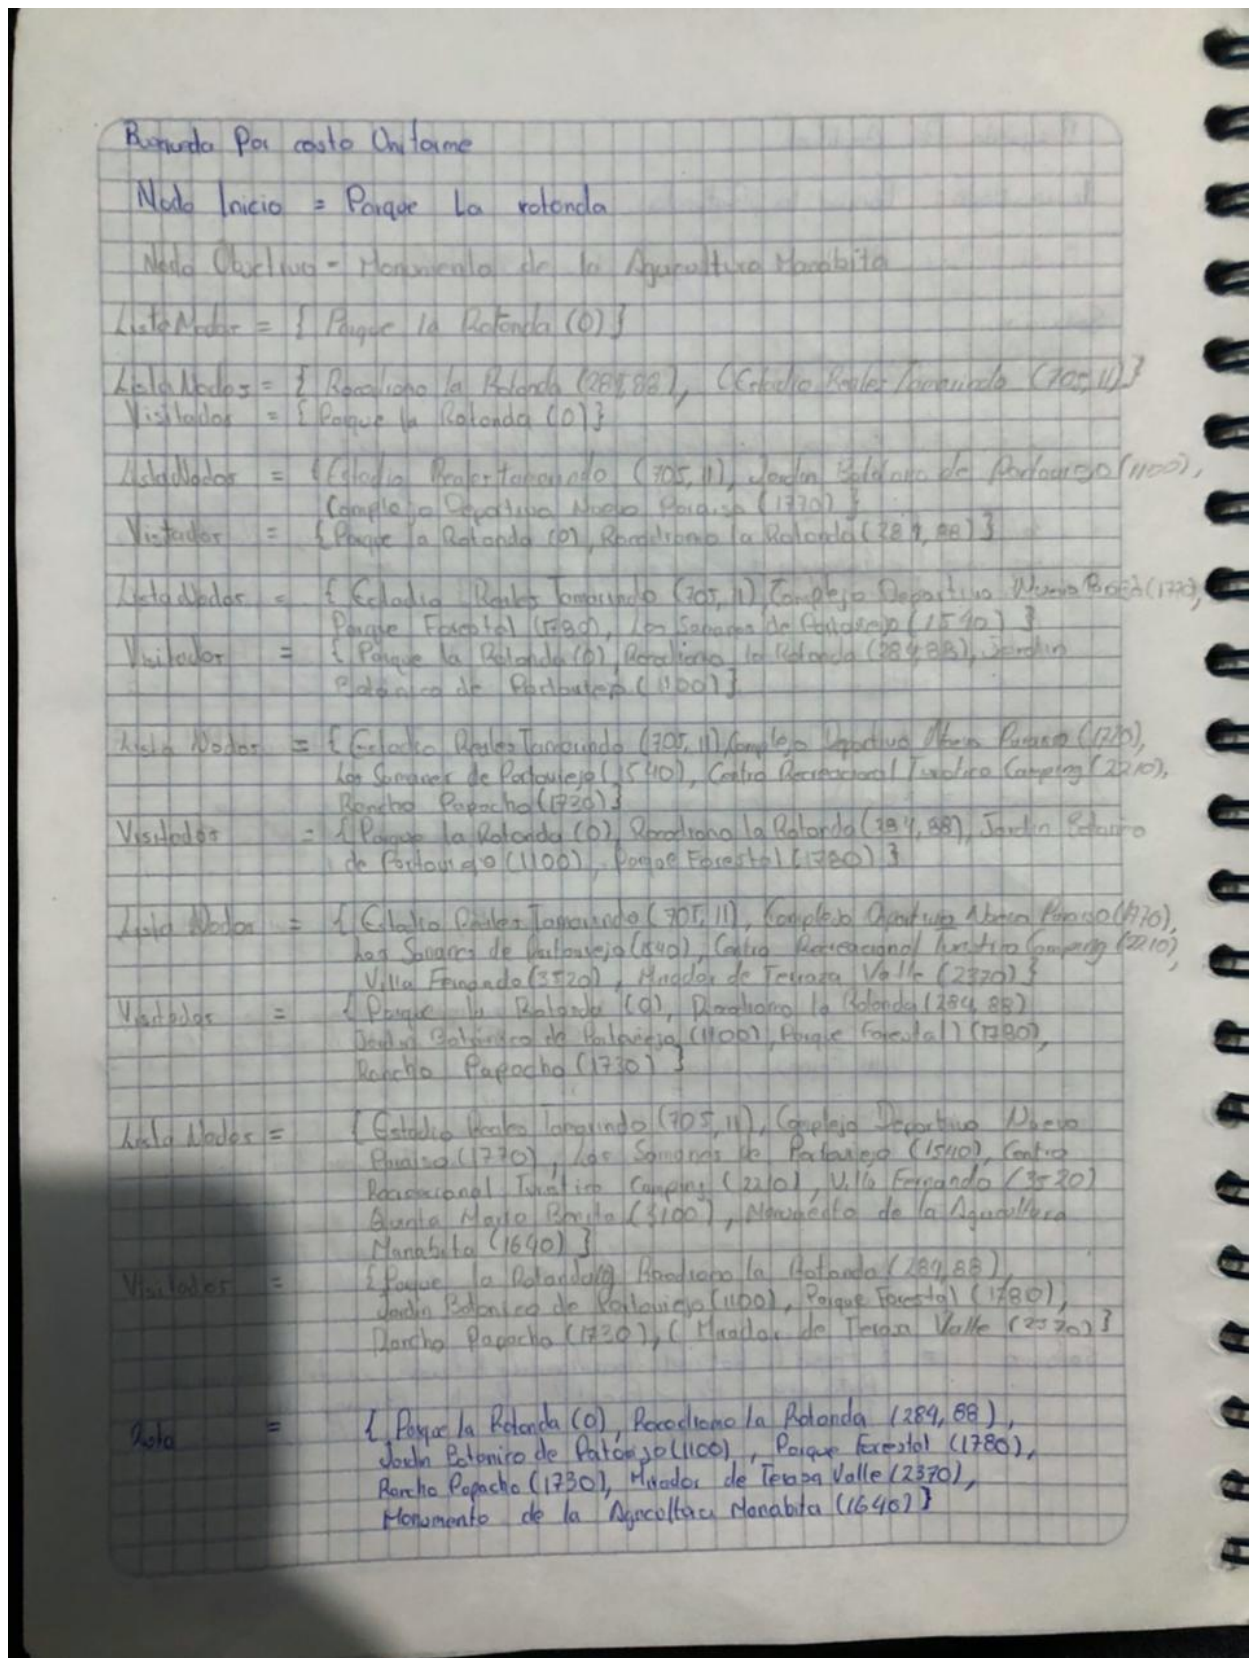 Busqueda Por costo Uniforme
Nodo Inicio = Parque La rotonda
Nodo Objetivo = Monumento de la Agricultura Manabita
ListaNodos = { Parque la Rotonda (0) }
Lista Nodos = { la Rotonda (284,88), (Estadio Reales Tamarindo (705,11) }
Visitados = { Parque la Rotonda (0) }
ListaNodos = { Estadio Reales Tamarindo (705,11), Jardin Botanico de Portoviejo (1100),
Complejo Deportivo Nuevo Paraiso (1770) }
Visitados = { Parque la Rotonda (0), la Rotonda (284,88) }
ListaNodos = { Estadio Reales Tamarindo (705,11), Complejo Deportivo Nuevo (1770),
Parque Forestal (1780), Los Samanes de Portoviejo (1540) }
Visitados = { Parque la Rotonda (0), la Rotonda (284,88), Jardin
Botánico de Portoviejo (1100) }
Lista Nodos = { Estadio Reales Tamarindo (705,11), Complejo Deportivo Nuevo Paraiso (1770),
Los Samanes de Portoviejo (1540), Centro Recreacional Turistico Camping (2210),
Rancho Papacho (1730) }
Visitados = { Parque la Rotonda (0), la Rotonda (284,88), Jardin Botanico
de Portoviejo (1100), Parque Forestal (1780) }
Lista Nodos = { Estadio Reales Tamarindo (705,11), Complejo Deportivo Nuevo Paraiso (1770),
Los Samanes de Portoviejo (1540), Centro Recreacional Turistico Camping (2210),
Villa Fernando (3520), Mirador de Terraza Valle (2370) }
Visitados = { Parque la Rotonda (0), la Rotonda (284,88)
Jardin Botánico de Portoviejo (1100), Parque Forestal) (1780),
Rancho Papacho (1730) }
Lista Nodos = { Estadio Reales Tamarindo (705,11), Complejo Deportivo Nuevo
Paraiso (1770), Los Samanes de Portoviejo (1540), Centro
Recreacional Turístico Camping (2210), Villa Fernando (3520)
Quinta Maria (3100), Monumento de la Agricultura
Manabita (1640) }
Visitados = { Parque la Rotonda la Rotonda (284,88),
Jardin Botanico de Portoviejo (1100), Parque Forestal (1780),
Rancho Papacho (1730), ( Mirador de Terraza Valle (2370) }
Ruta = { Parque la Rotonda (0), la Rotonda (284,88),
Jardin Botanico de (1100), Parque Forestal (1780),
Rancho Papacho (1730), Mirador de Teraza Valle (2370),
Monumento de la Agricultura Manabita (1640) }